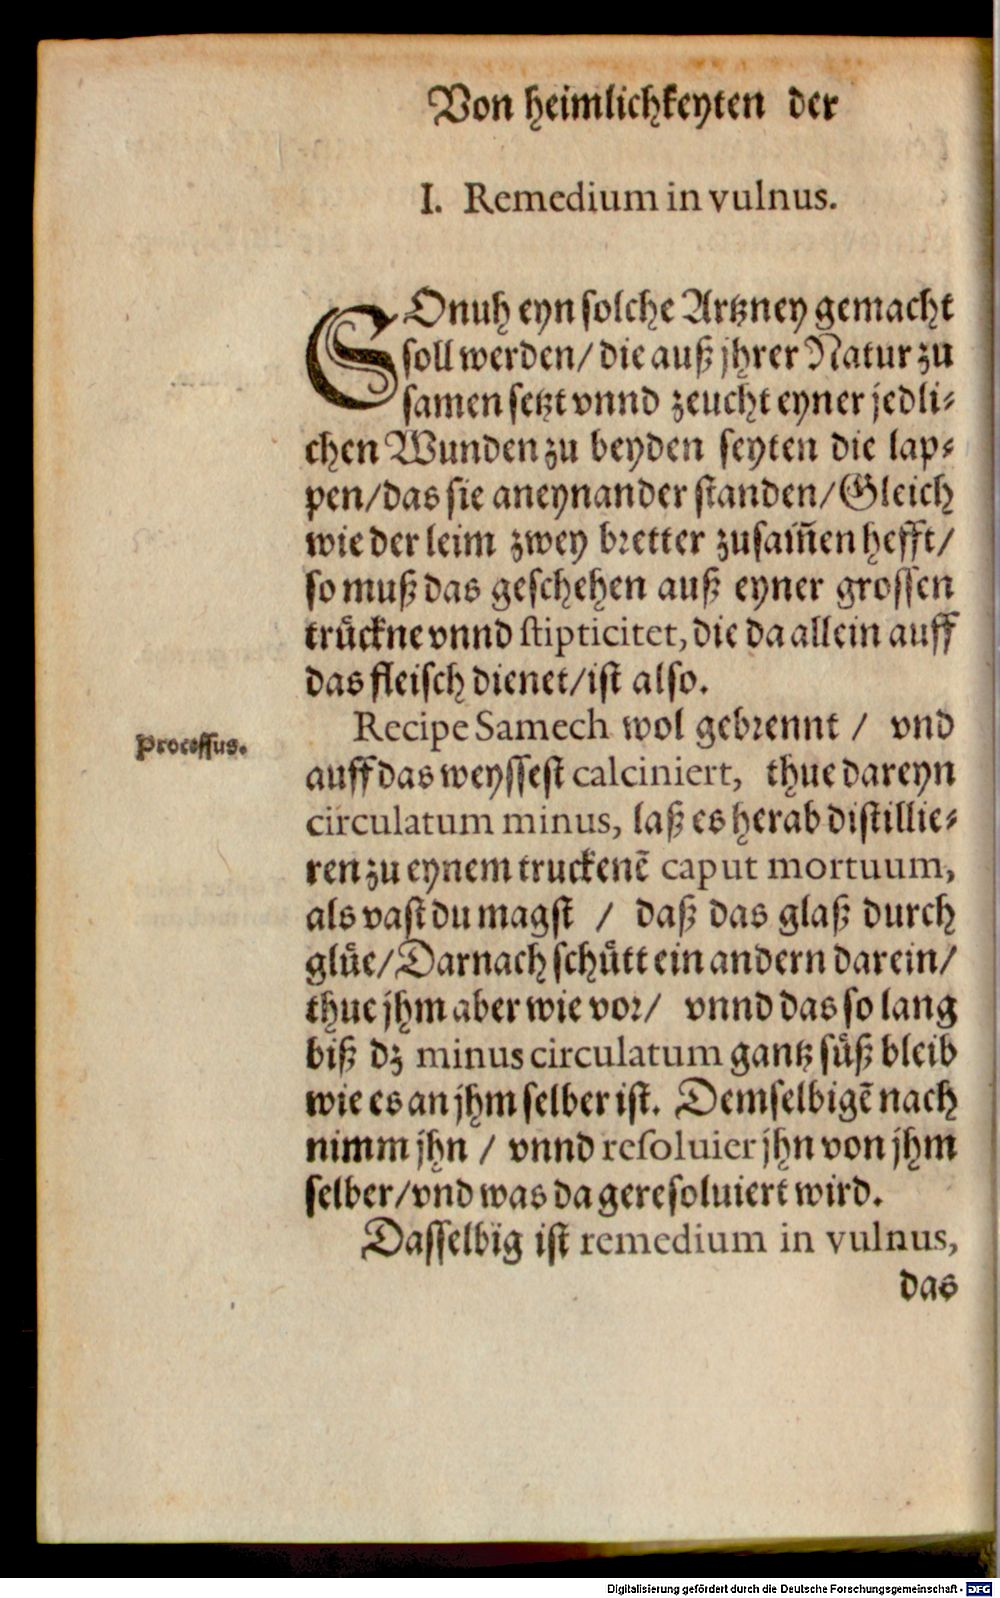 Von heimlichkeyten der
I. Remedium in vulnus.
SOnuh eyn solche Artzney gemacht
soll werden/ die auß jhrer Natur zu
samen setzt vnnd zeucht eyner jedli-
chen Wunden zu beyden seyten die lap-
pen/das sie aneynander standen/Gleich
wie der leim zwey bretter zusam̃en hefft/
so muß das geschehen auß eyner grossen
trůckne vnnd stipticitet, die da allein auff
das fleisch dienet/ist also.
Recipe Samech wol gebrennt / vnd
Processus.
auff das weyssest calciniert, thue dareyn
circulatum minus, laß es herab distillie-
ren zu eynem truckenẽ caput mortuum,
als vast du magst / daß das glaß durch
glůe/Darnach schůtt ein andern darein/
thue jhm aber wie vor/ vnnd das so lang
biß dz minus circulatum gantz sůß bleib
wie es an jhm selber ist. Demselbigẽ nach
nimm jhn / vnnd resoluier jhn von jhm
selber/vnd was da geresoluiert wird.
Dasselbig ist remedium in vulnus,
das
Digitalisierung gefördert durch die Deutsche Forschungsgemeinschaft - DFG